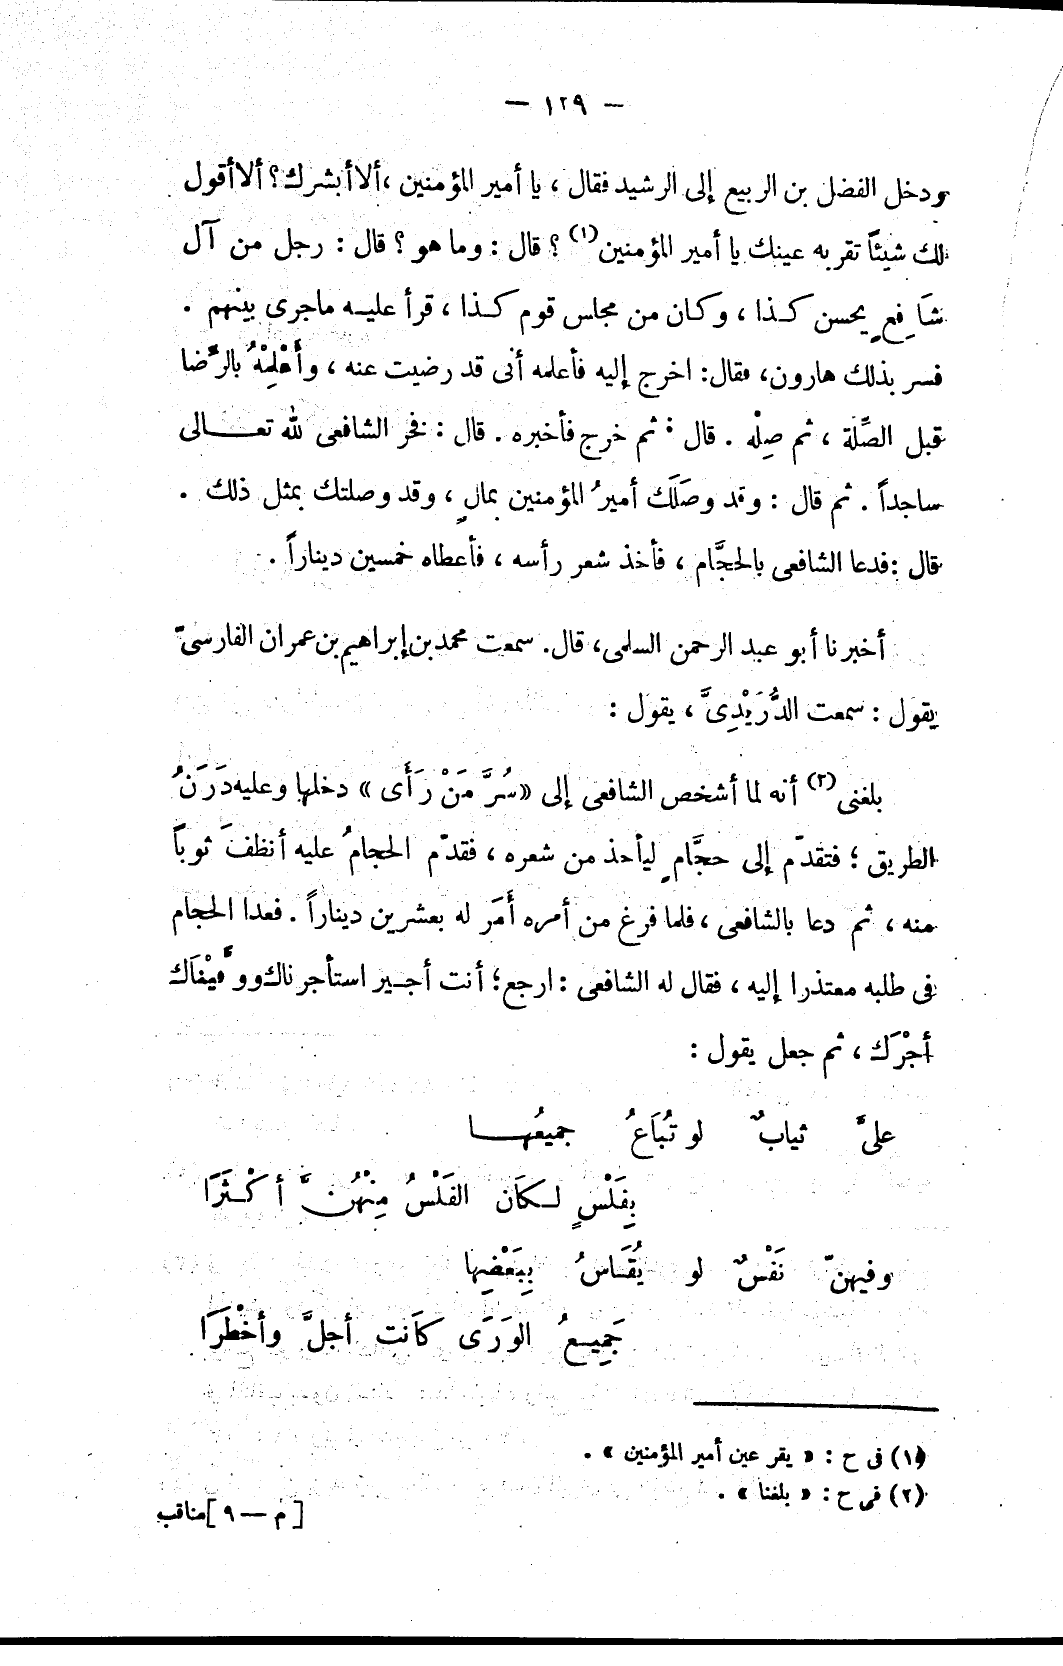 — ١٢٩ —
ودخل الفضل بن الربيع إلى الرشيد فقال ، يا أمير المؤمنين ، ألا أبشرك؟ ألا أقول
لك شيئاً تقر به عينك يا أمير المؤمنين (١) ؟ قال : وما هو ؟ قال : رجل من آل
شَافِعٍ يحسن كذا ، وكان من مجلس قوم كذا ، قرأ عليه ماجرى بينهم .
فسر بذلك هارون، فقال: اخرج إليه فأعلمه أنى قد رضيت عنه ، وأَعْلِمْهُ بالرِّضا
قبل الصِّلة ، ثم صِلْه . قال : ثم خرج فأخبره . قال : فخر الشافعى لله تعالى
ساجداً . ثم قال : وقد وصَلَك أميرُ المؤمنين بمالٍ ، وقد وصلتك بمثل ذلك .
قال : فدعا الشافعى بالحجَّام ، فأخذ شعر رأسه ، فأعطاه خمسين ديناراً .
أخبرنا أبو عبد الرحمن السلمى، قال. سمعت محمد بن إبراهيم بن عمران الفارسىّ
يقول : سمعت الدُّرَيْدِىَّ ، يقول :
بلغنى (٢) أنه لما أشخص الشافعى إلى «سُرَّ مَنْ رَأَى» دخلها وعليه دَرَنُ
الطريق ؛ فتقدّم إلى حجَّامٍ ليأخذ من شعره ، فقدّم الحجامُ عليه أنظفَ ثوباً
منه ، ثم دعا بالشافعى ، فلما فرغ من أمره أَمَر له بعشرين ديناراً . فعدا الحجام
فى طلبه معتذرا إليه ، فقال له الشافعى : ارجع؛ أنت أجير استأجرناك ووفَّيْناك
أجْرَك ، ثم جعل يقول :
علىَّ ثيابٌ لو تُبَاعُ جميعُها
بِفَلْسٍ لكَان الفَلْسُ مِنْهُنَّ أكْثَرَا
وفيهنّ نَفْسٌ لو يُقَاسُ بِبَعْضِها
جَمِيعُ الوَرَى كَانت أجلَّ وأخْطَرَا
(١) فى ح : « يقر عين أمير المؤمنين » .
(٢) فى ح : « بلغنا » .
[ م — ٩ ] مناقب